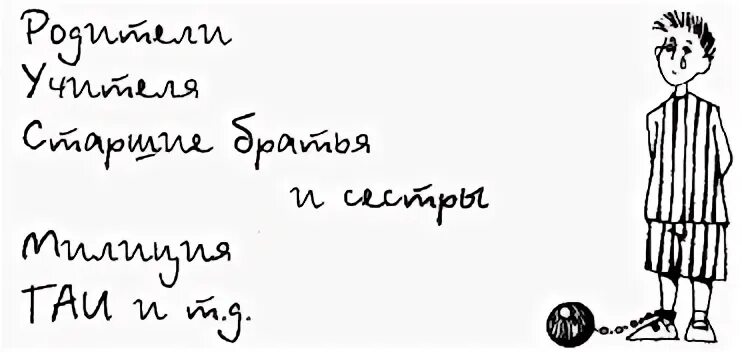 Родители
Учителя
Старшие братья
и сестры
Милиция
ГАИ и т.д.